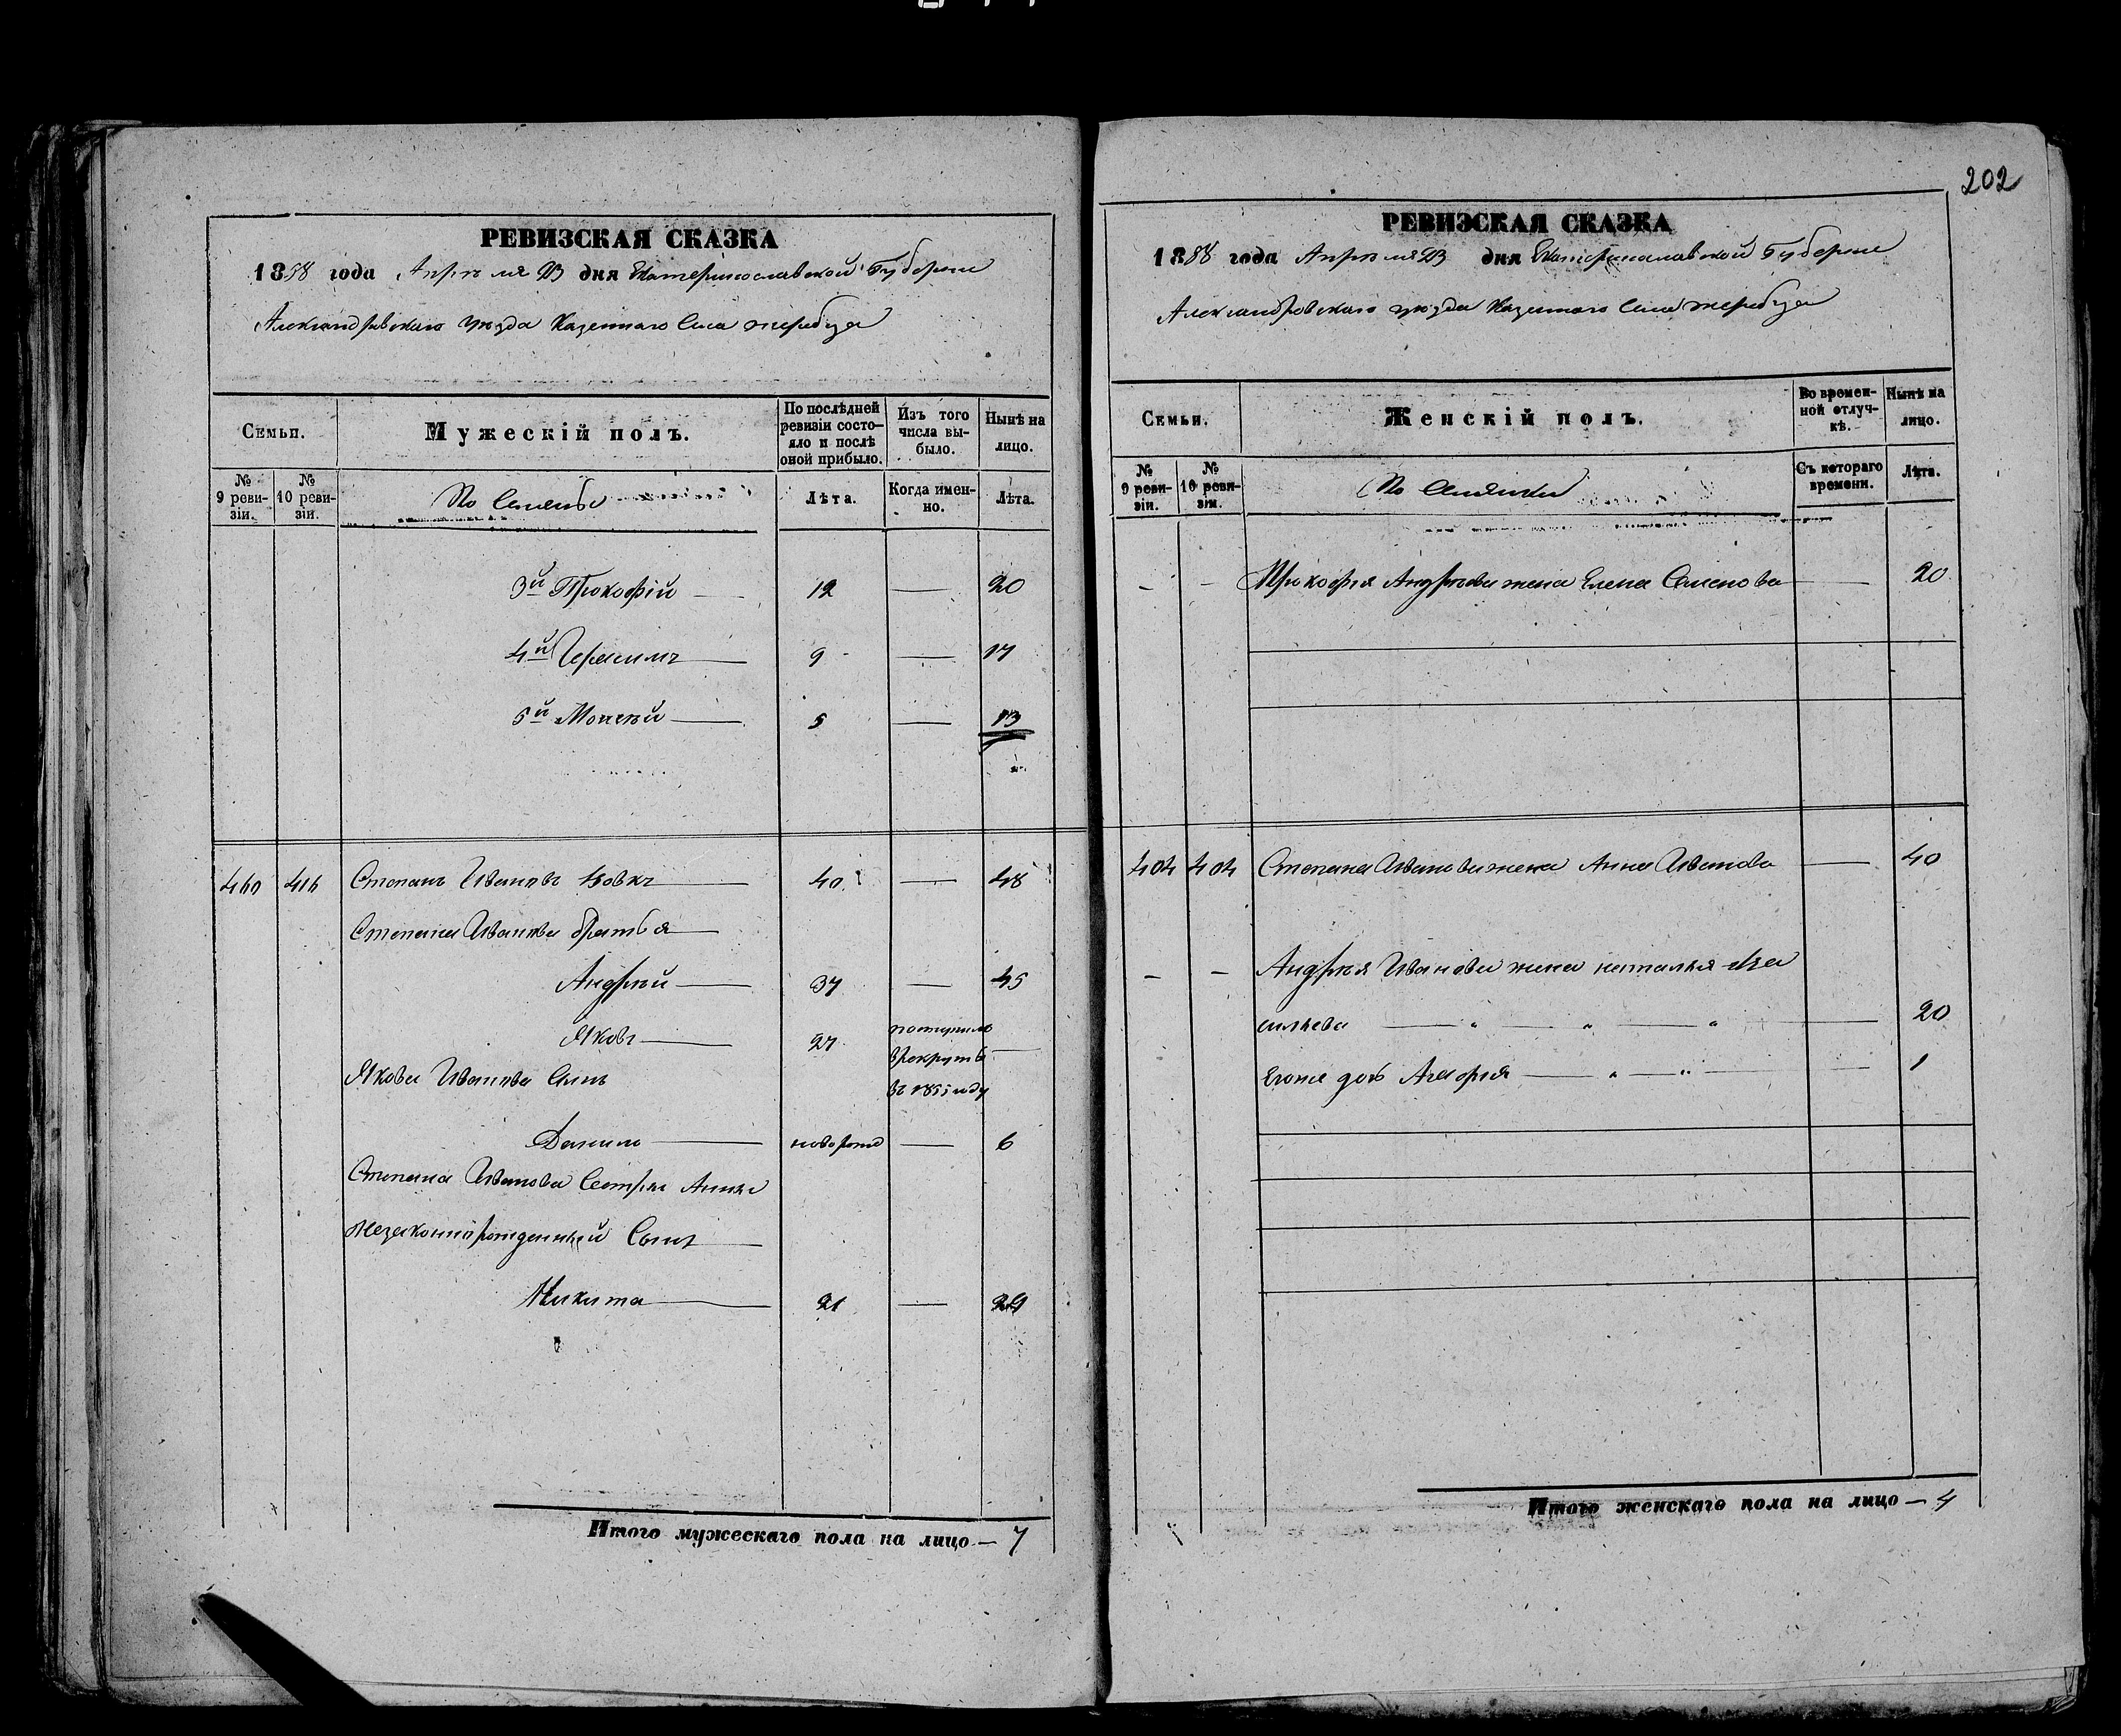 202
РЕВИЗСКАЯ СКАЗКА
1858 года Апреля 23 дня Екатеринославской Губернии
Александровскаго уезда Казеннаго Села Жеребца
Семьи.
Мужескій полъ.
По послѣдней ревизіи состояло и послѣ оной прибыло.
Изъ того числа выбыло.
Нынѣ на лицо.
№ 9 ревизіи.
№ 10 ревизіи.
Лѣта.
Когда именно.
Лѣта.
3й Прокофій — 12 — 20
4й Герасимъ — 9 — 17
5й Моисей — 5 — 13
Степанъ Ивановъ Вовкъ — 40 — 48
Степана Иванова братья —
Андрѣй — 37 — 45
Яковъ — 27 поступилъ
в рекруты —
въ 1855 году
Якова Иванова Сынъ
Данило — новорож — 6
Степана Иванова Сестры Анны
Незаконнорожденный Сынъ —
Никита — 21 — 29
Итого мужескаго пола на лицо — 7
РЕВИЗСКАЯ СКАЗКА
1858 года Апреля 23 дня Екатеринославской Губернии
Александровскаго уезда Казеннаго Села Жеребца
Семьи.
Женскій полъ.
Во временной отлучкѣ.
Нынѣ на лицо.
№ 9 ревизіи.
№ 10 ревизіи.
Съ котораго времени.
Лѣта.
— — Прокофія Андрѣева жена Елена Семенова — 20
404 404 Степана Иванова жена Анна Иванова — 40
— — Андрѣя Иванова жена Наталья Ва
сильева — 20
его же дочь Агафия — 1
Итого женскаго пола на лицо — 4